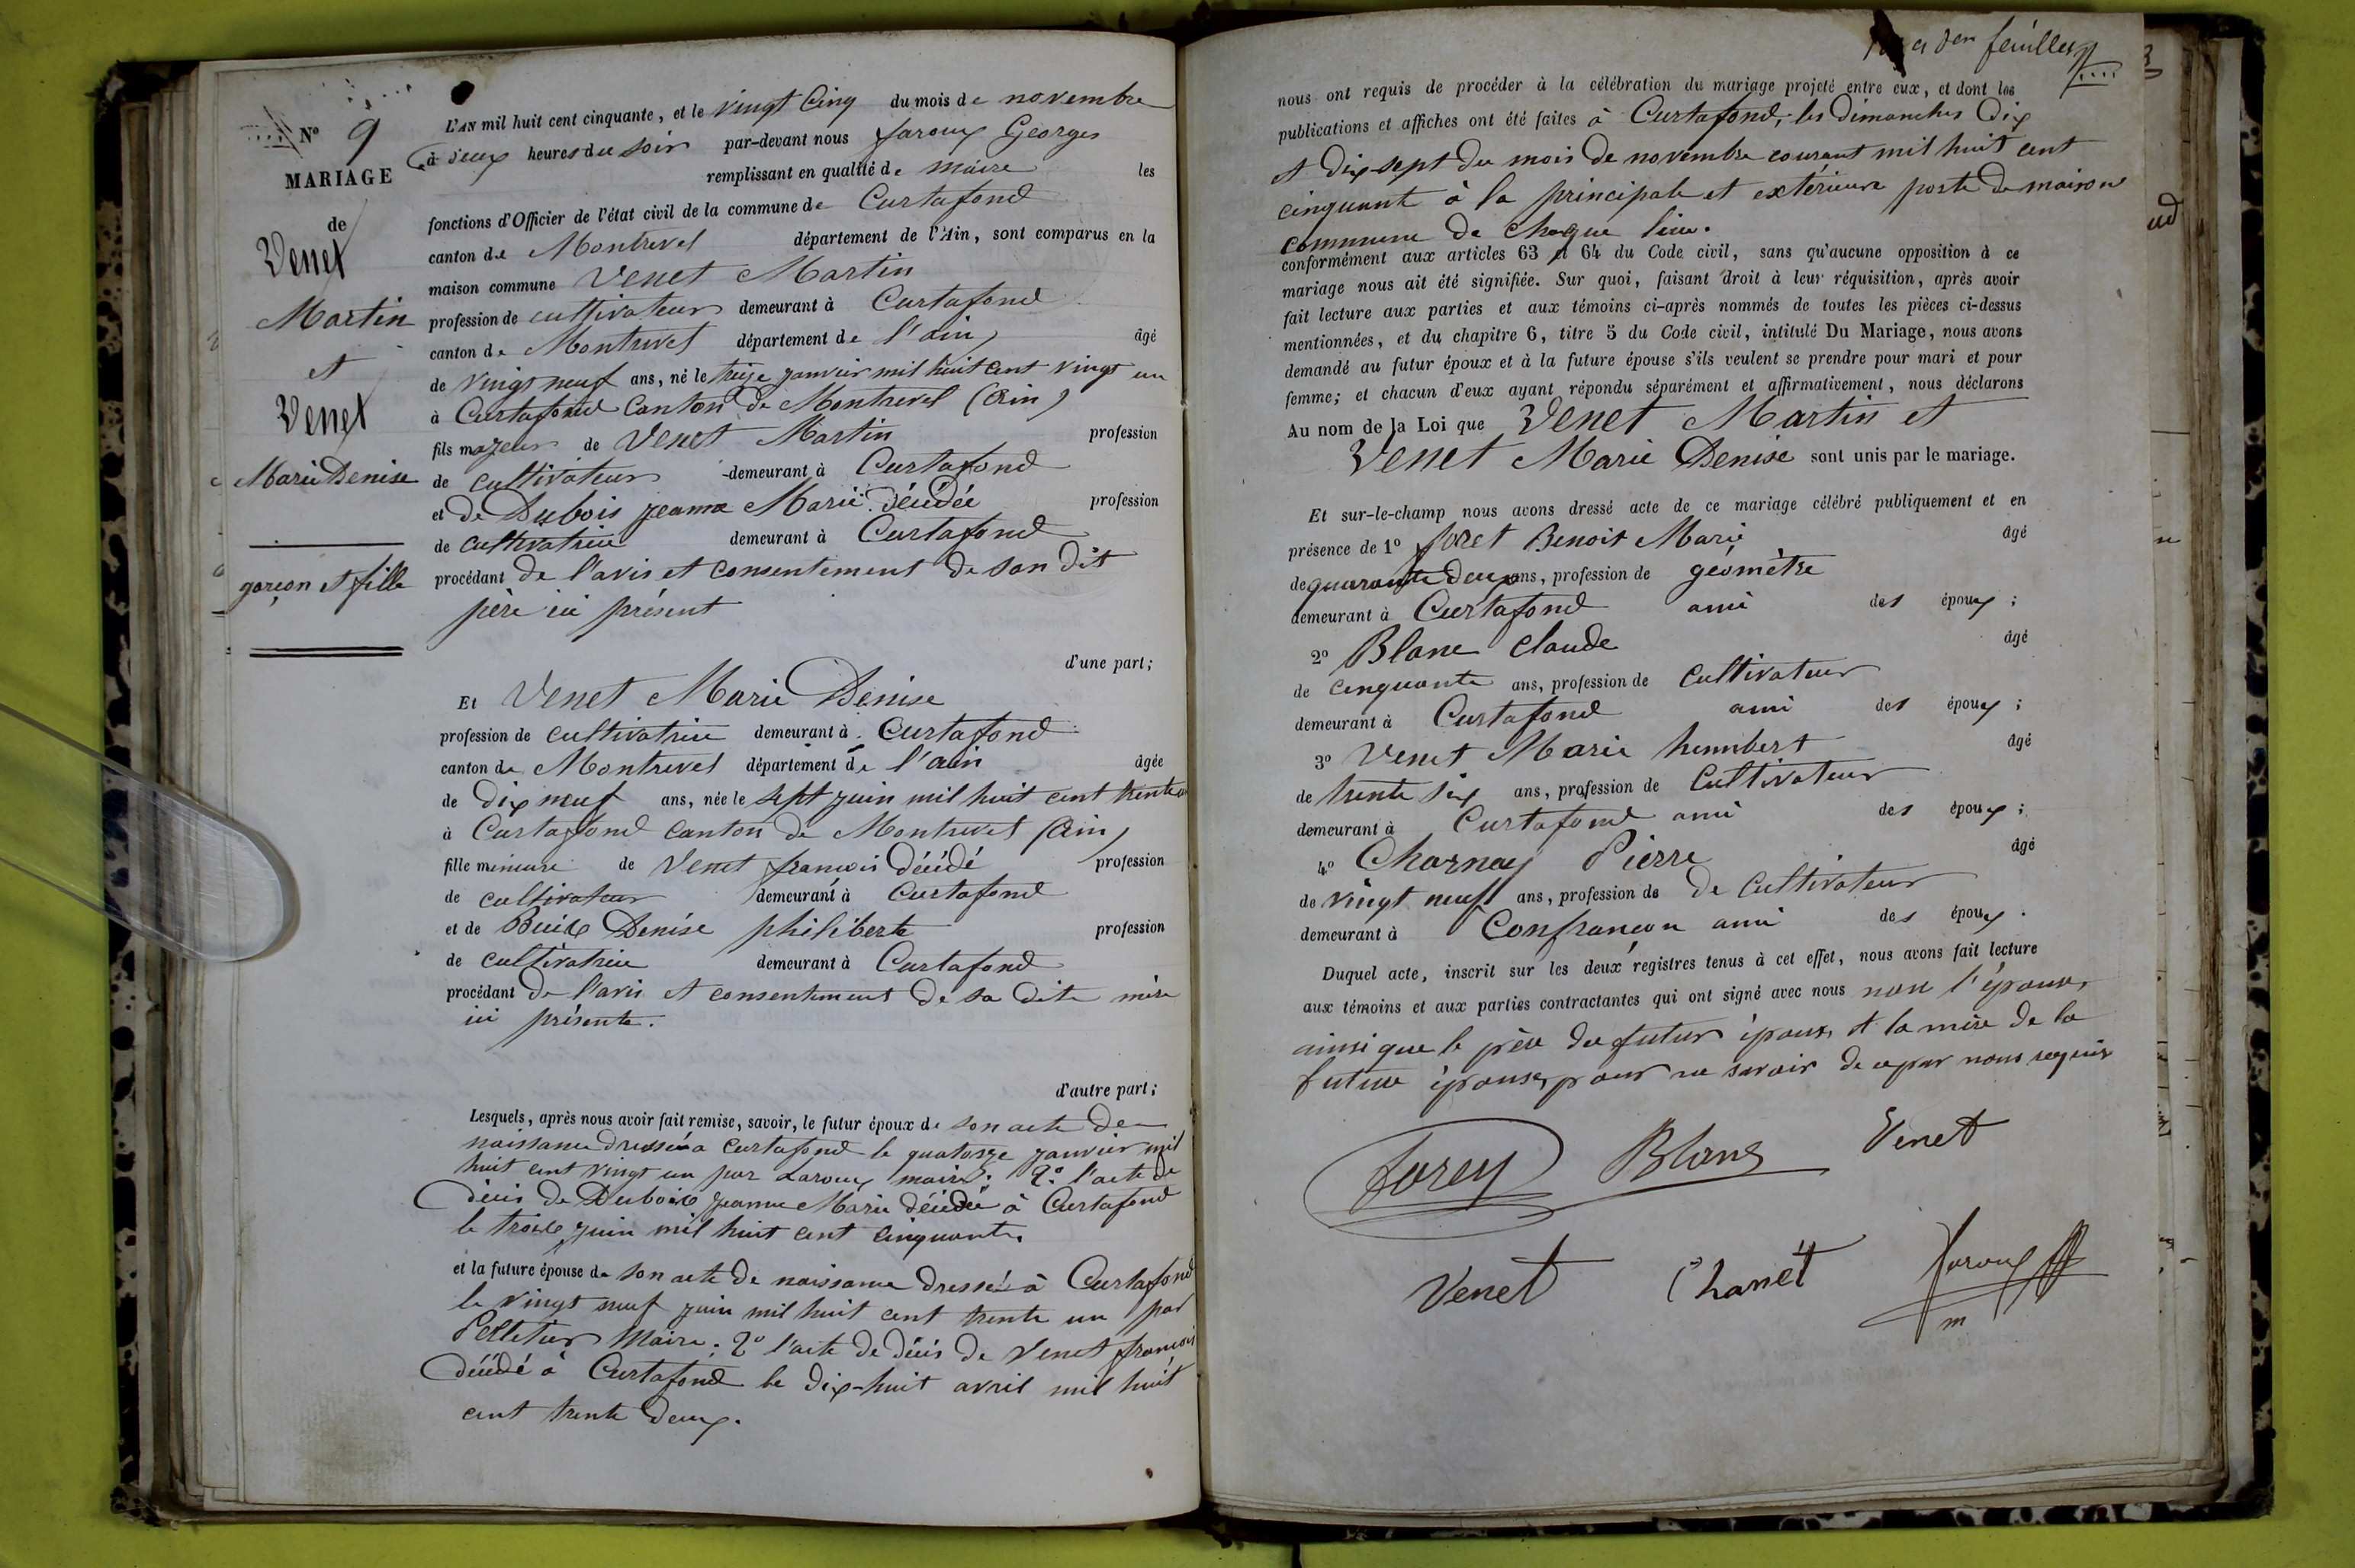 Nº 9
MARIAGE
de
Venet
Martin
et
Venet
Marie Denise
garçon et fille
L'AN mil huit cent cinquante, et le vingt cinq du mois de novembre
à deux heures du soir par-devant nous Laroux Georges
remplissant en qualité de maire les
fonctions d'Officier de l'état civil de la commune de Curtafond
canton de Montrevel département de l'Ain, sont comparus en la
maison commune Venet Martin
profession de cultivateur demeurant à Curtafond
canton de Montrevel département de l'ain, âgé
de vingt neuf ans, né le treize janvier mil huit cent vingt un
à Curtafond Canton de Montrevel (Ain)
fils majeur de Venet Martin profession
de cultivateur demeurant à Curtafond
et de Dubois jeanne Marie décédée profession
de cultivatrice demeurant à Curtafond
procédant de l'avis et consentement de son dit
père ici présent
d'une part;
Et Venet Marie Denise
profession de cultivatrice demeurant à Curtafond
canton de Montrevel département de l'ain âgée
de dix neuf ans, née le sept juin mil huit cent trente un
à Curtafond canton de Montrevel (Ain)
fille mineure de Venet françois décédé profession
de cultivateur demeurant à Curtafond
et de Denise philiberte profession
de cultivatrice demeurant à Curtafond
procédant de l'avis et consentement de sa dite mère
ici présente.
d'autre part;
Lesquels, après nous avoir fait remise, savoir, le futur époux de son acte de
naissance dressé à Curtafond le quatorze janvier mil
huit cent vingt un par Laroux maire; 2º l'acte de
décès de Dubois jeanne Marie décédée à Curtafond
le juin mil huit cent cinquante.
et la future épouse de son acte de naissance dressé à Curtafond
le vingt neuf juin mil huit cent trente un par
Pelletier Maire; 2º l'acte de décès de Venet françois
décédé à Curtafond le dix-huit avril mil huit
cent trente deux.
feuillet
nous ont requis de procéder à la célébration du mariage projeté entre eux, et dont les
publications et affiches ont été faites à Curtafond, les dimanches dix
et dix-sept du mois de novembre courant mil huit cent
cinquante à la principale et extérieure porte de maison
commune de chaque lieu.
conformément aux articles 63 et 64 du Code civil, sans qu'aucune opposition à ce
mariage nous ait été signifiée. Sur quoi, faisant droit à leur réquisition, après avoir
fait lecture aux parties et aux témoins ci-après nommés de toutes les pièces ci-dessus
mentionnées, et du chapitre 6, titre 5 du Code civil, intitulé Du Mariage, nous avons
demandé au futur époux et à la future épouse s'ils veulent se prendre pour mari et pour
femme; et chacun d'eux ayant répondu séparément et affirmativement, nous déclarons
Au nom de la Loi que Venet Martin et
Venet Marie Denise sont unis par le mariage.
Et sur-le-champ nous avons dressé acte de ce mariage célébré publiquement et en
présence de 1º Benoit Marie âgé
de quarante deux ans, profession de géomètre
demeurant à Curtafond ami des époux;
2º Blanc Claude âgé
de cinquante ans, profession de cultivateur
demeurant à Curtafond ami des époux;
3º Venet Marie humbert âgé
de trente six ans, profession de Cultivateur
demeurant à Curtafond ami des époux;
4º Charnay Pierre âgé
de vingt neuf ans, profession de de Cultivateur
demeurant à Confrançon ami des époux.
Duquel acte, inscrit sur les deux registres tenus à cet effet, nous avons fait lecture
aux témoins et aux parties contractantes qui ont signé avec nous non l'épouse,
ainsi que le père du futur époux, et la mère de la
future épouse, pour ne savoir de ce par nous requis
Blanc Venet
Venet Laroux
m